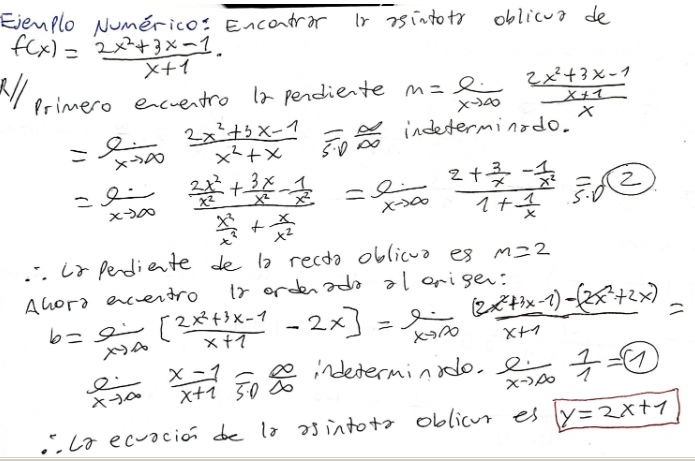 Ejemplo Numérico: Encontrar la asíntota oblicua de
f(x) = (2x²+3x-1)/(x+1).
R// Primero encuentro la pendiente m = lim x→∞ ((2x²+3x-1)/(x+1))/x
= lim x→∞ (2x²+3x-1)/(x²+x) =S.D ∞/∞ indeterminado.
= lim x→∞ (2x²/x² + 3x/x² - 1/x²)/(x²/x² + x/x²) = lim x→∞ (2 + 3/x - 1/x²)/(1 + 1/x) =S.D 2
∴ La Pendiente de la recta oblicua es m=2
Ahora encuentro la ordenada al origen:
b = lim x→∞ [(2x²+3x-1)/(x+1) - 2x] = lim x→∞ ((2x²+3x-1)-(2x²+2x))/(x+1) =
lim x→∞ (x-1)/(x+1) =S.D ∞/∞ indeterminado. lim x→∞ 1/1 = 1
∴ La ecuación de la asíntota oblicua es y=2x+1